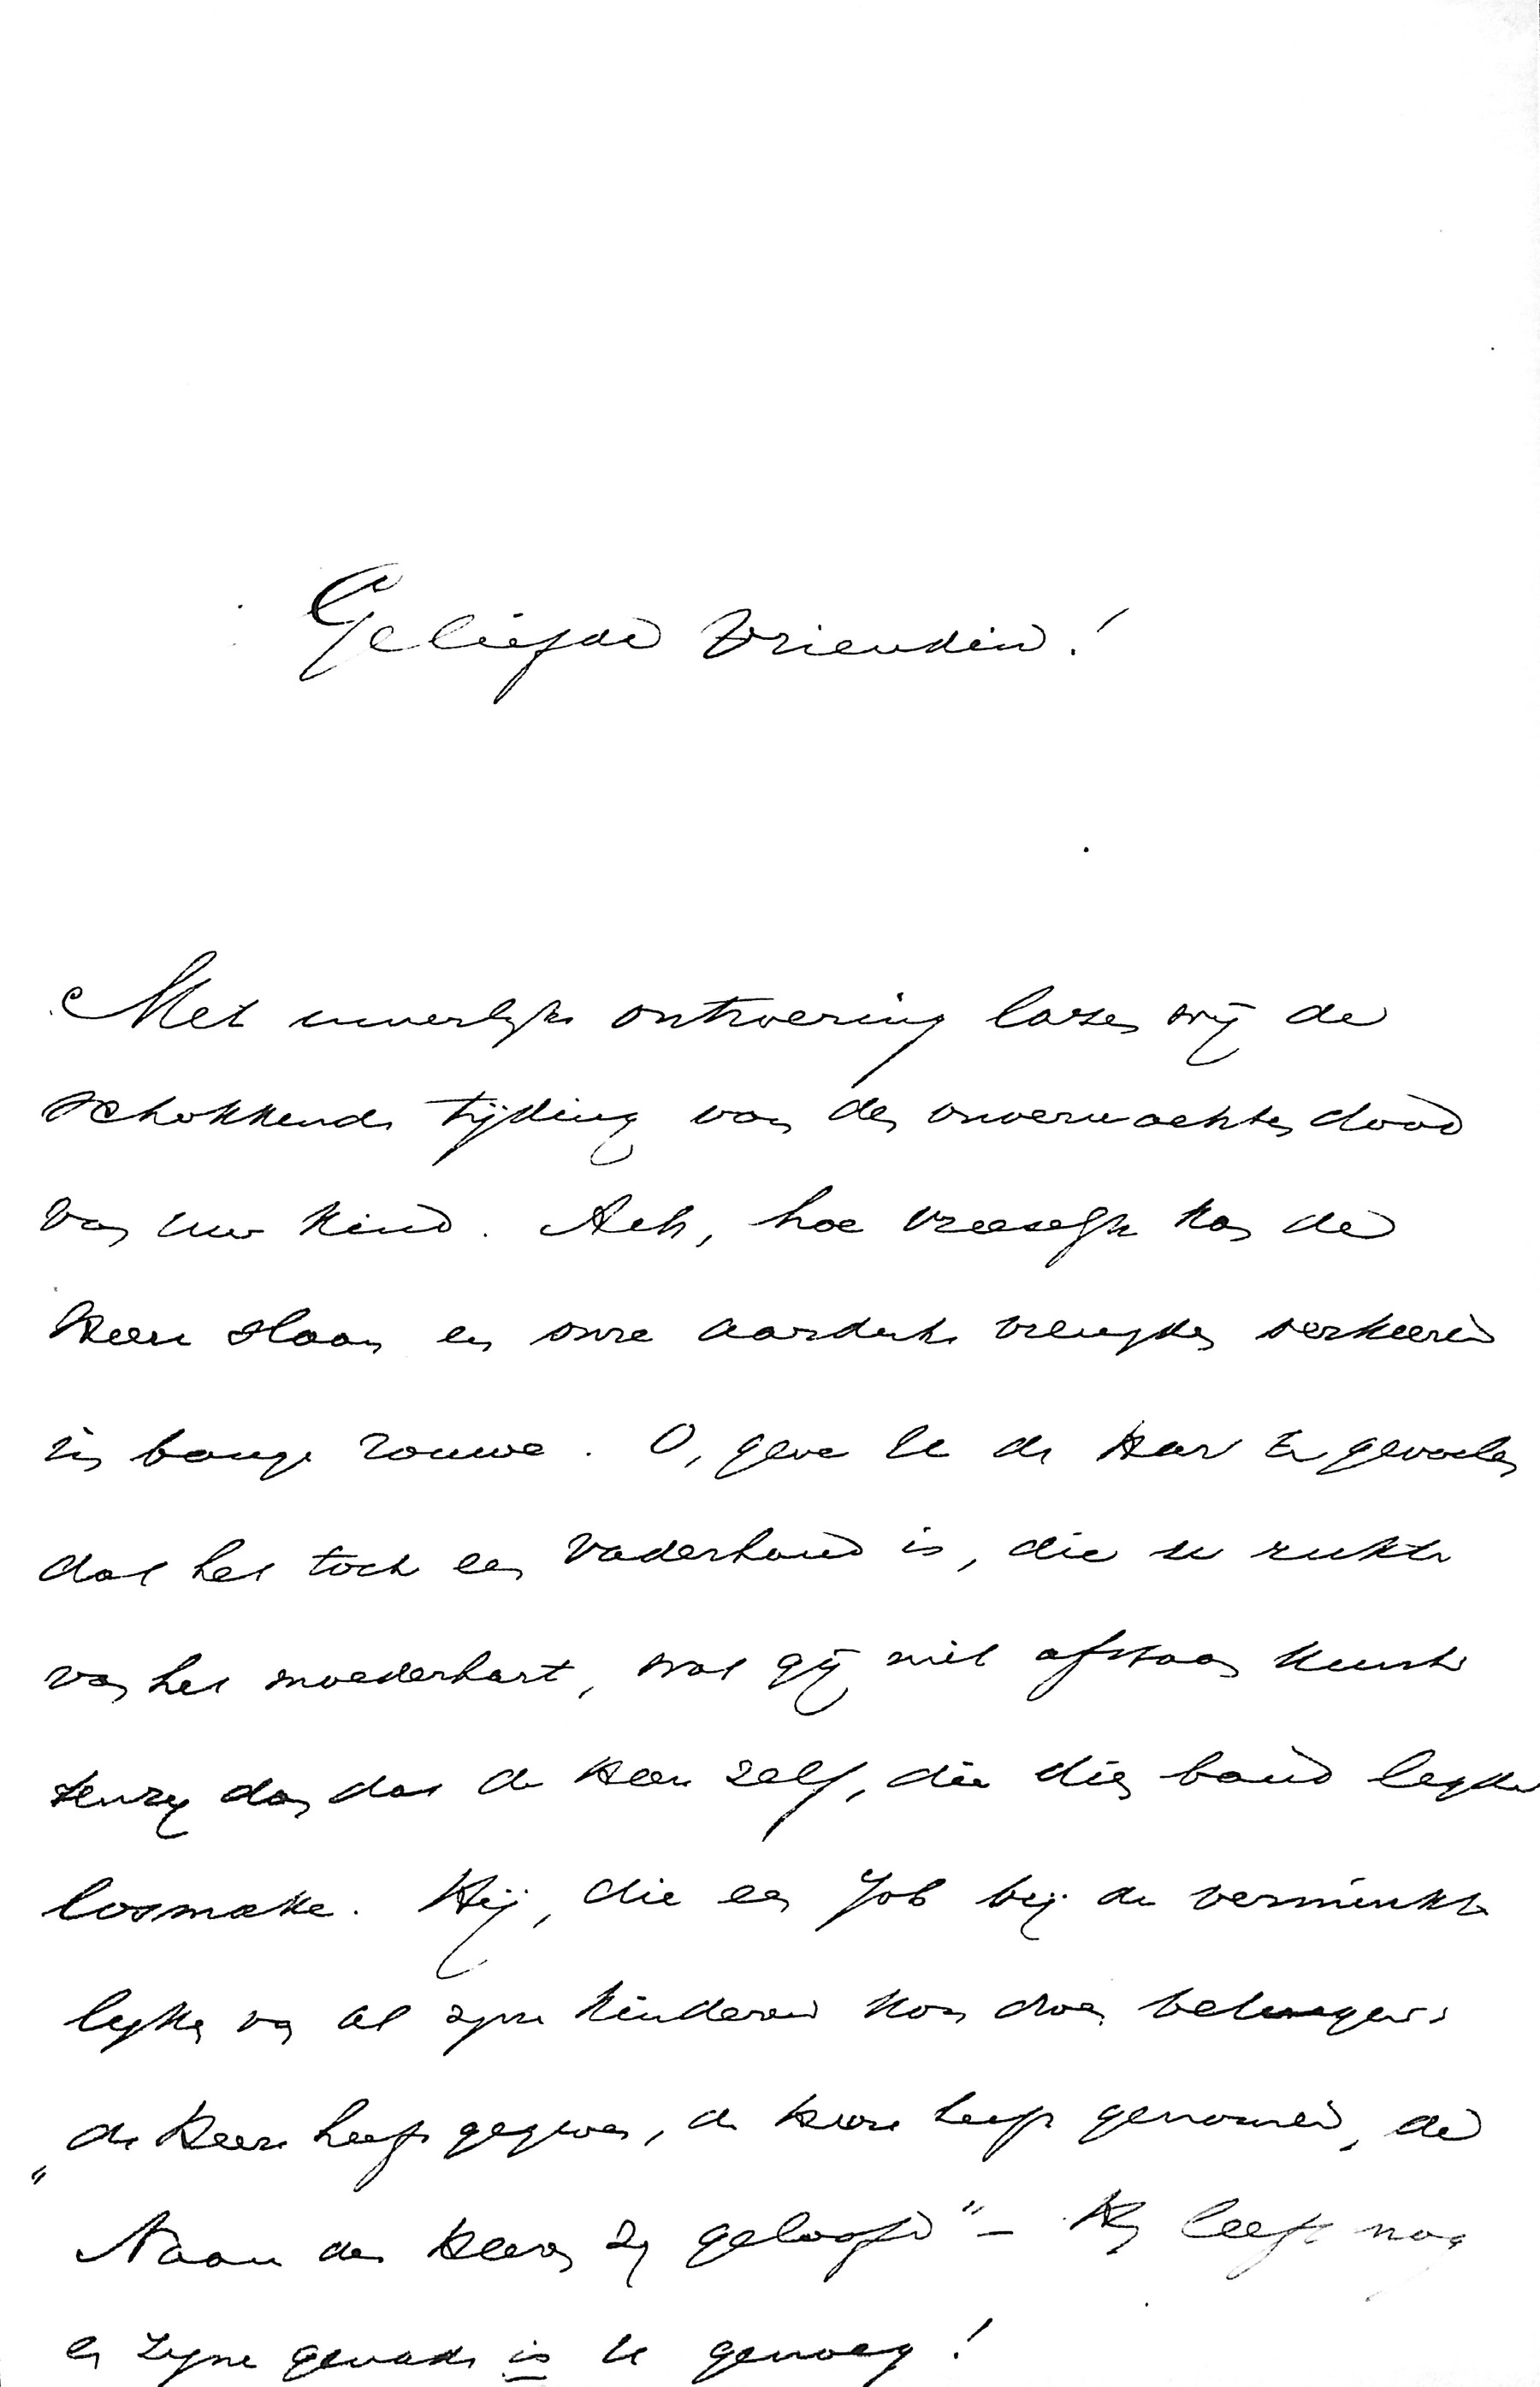 Geliefde Vriendin!
Met innerlijke ontroering lazen wij de
schokkende tijding van den onverwachten dood
van uw kind. Ach, hoe vreeselijk kan de
Heere slaan en onze aardsche vreugden verkeeren
in bange rouwe. O, geve U de Heer te gevoelen
dat het toch een Vaderhand is, die u rukte
van het moederhart, wat gij niet afstaan kunt
tenzij dan dat de Heer zelf, die dien band legde
losmake. Hij, die een Job bij de verminkte
lijken van al zijn kinderen kon doen betuigen:
"de Heere heeft gegeven, de Heere heeft genomen, de
Naam des Heeren zij geloofd" – Hij leeft nog
en zijne genade is U genoeg!